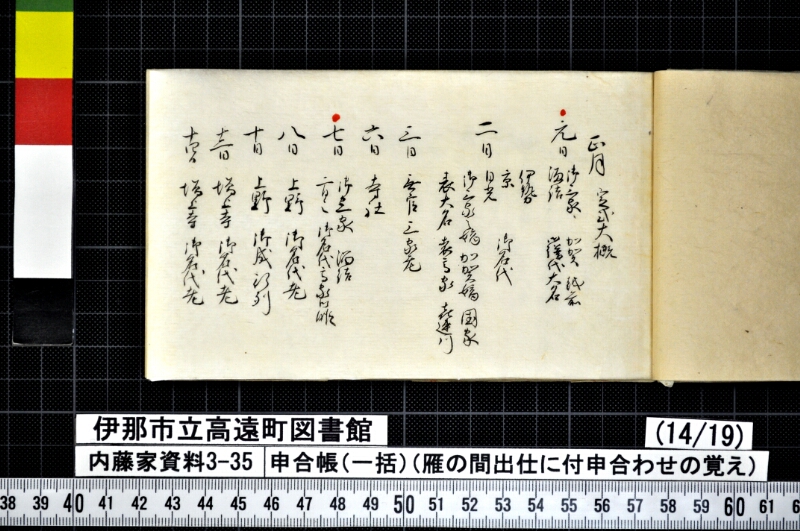 正月 定式大概
元日 御三家 加賀 越前
溜詰 譜代大名
伊勢
京 御名代
日光
二日 御三家嫡 加賀嫡 国家
表大名 表高家 喜連川
三日 無官 三家老
六日 寺社
七日 御三家 溜詰
御名代高家
八日 上野 御名代老
十日 上野 御成行列
増上寺 御名代老
増上寺 御名代老
伊那市立高遠町図書館
(14/19)
内藤家資料3-35 申合帳(一括)(雁の間出仕に付申合わせの覚え)
38 39 40 41 42 43 44 45 46 47 48 49 50 51 52 53 54 55 56 57 58 59 60 61